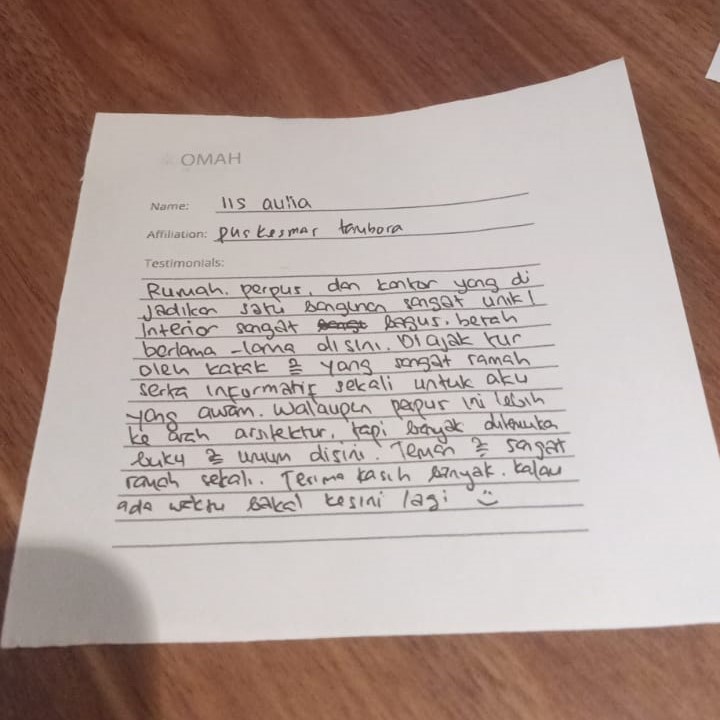 OMAH
Name: Iis aulia
Affiliation: puskesmas tambora
Testimonials:
Rumah, perpus, dan kantor yang di
jadikan satu bangunan sangat unik!
Interior sangat bagus. betah
berlama-lama disini. Di ajak tur
oleh kakak 2 yang sangat ramah
serta informatif sekali untuk aku
yang awam. Walaupun perpus ini lebih
ke arah arsitektur, tapi banyak ditemukan
buku 2 umum disini. Teman 2 sangat
ramah sekali. Terima kasih banyak. Kalau
ada waktu bakal kesini lagi :)